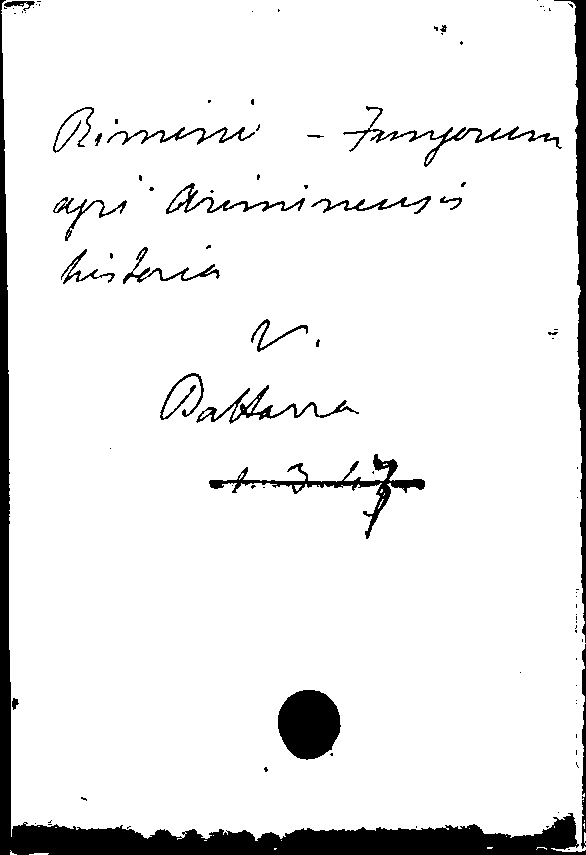 Rimini - Fungorum
agri Ariminensis
historia
V.
Battarra